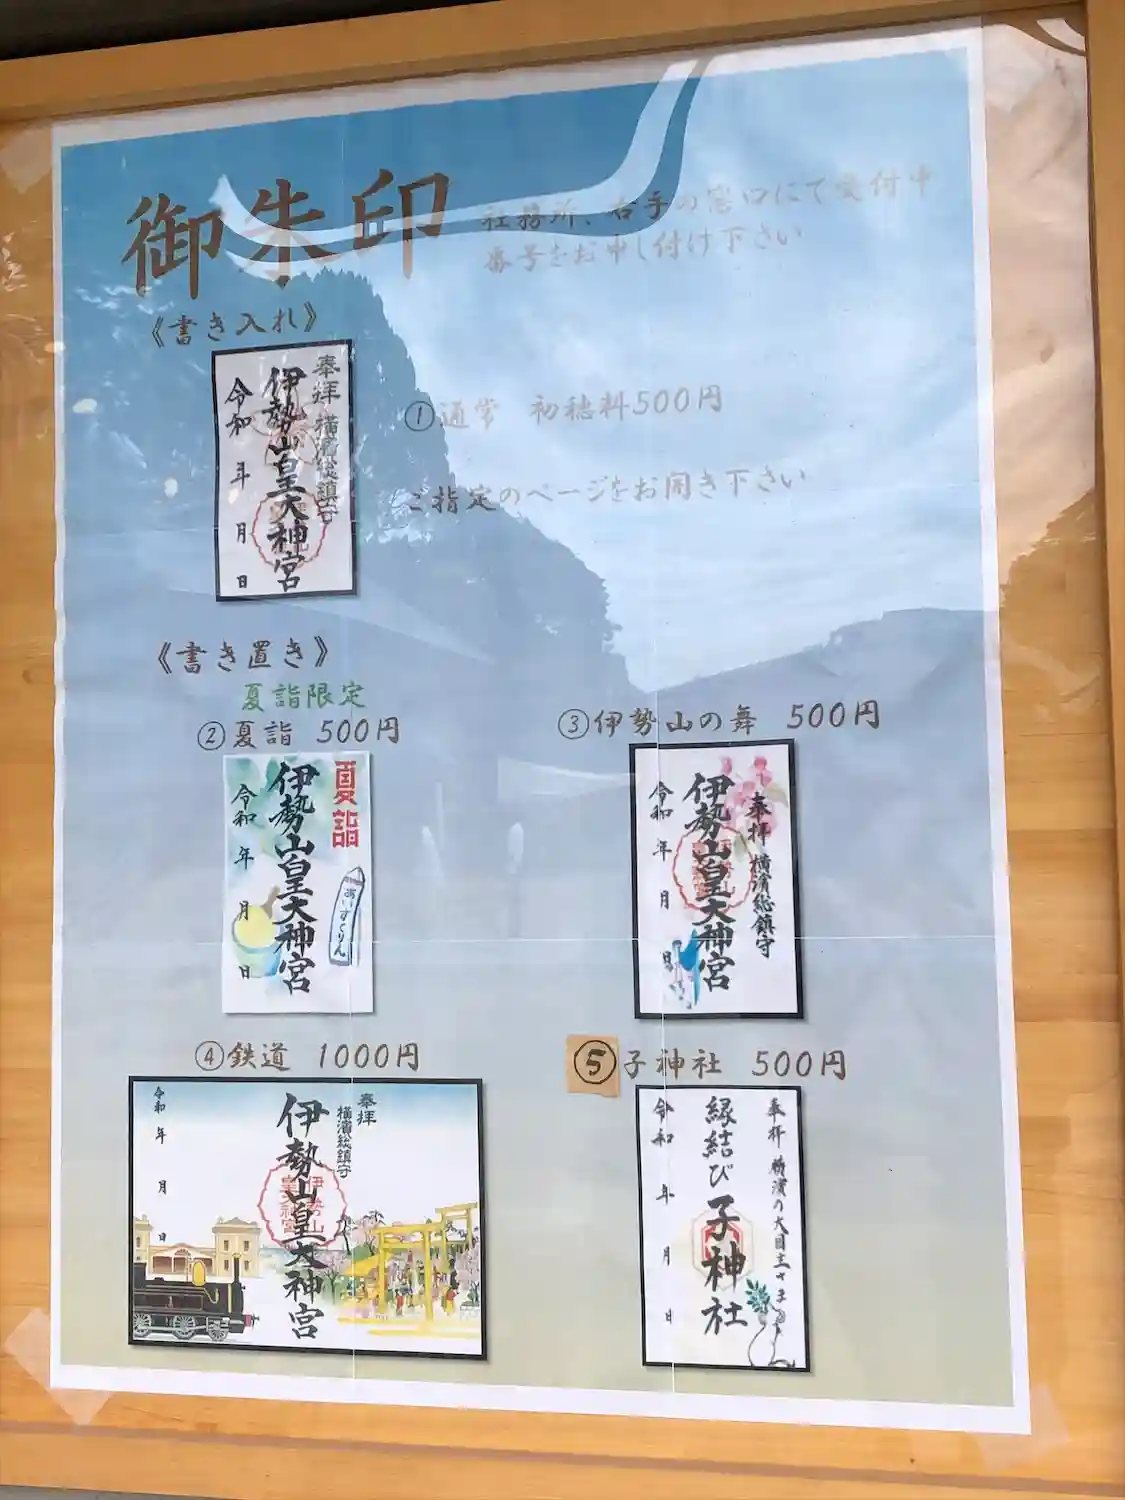 御朱印
社務所、右手の窓口にて受付中
番号をお申し付け下さい
《書き入れ》
①通常 初穂料500円
ご指定のページをお開き下さい
奉拝 横濱総鎮守
伊勢山皇大神宮
令和 年 月 日
《書き置き》
夏詣限定
②夏詣 500円
夏詣
伊勢山皇大神宮
あいすくりん
令和 年 月 日
③伊勢山の舞 500円
奉拝 横濱総鎮守
伊勢山皇大神宮
令和 年 月 日
④鉄道 1000円
奉拝
横濱総鎮守
伊勢山皇大神宮
伊勢山
皇大神宮
令和 年 月 日
⑤子神社 500円
奉拝 横濱の大国主さま
縁結び 子神社
令和 年 月 日